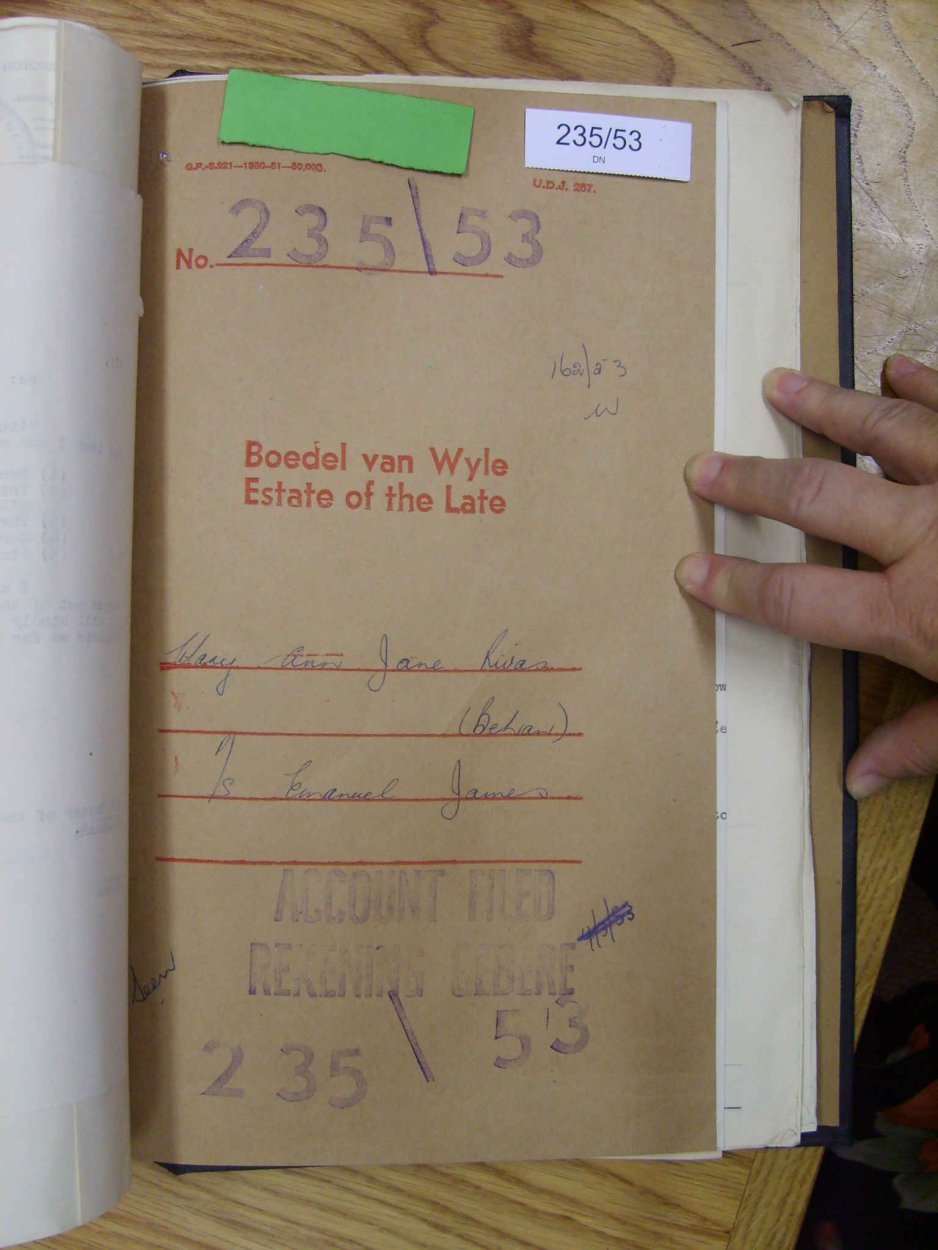 235/53
DN
G.P.-S.921—1950-51—80,000.
U.D.J. 257.
No. 235\53
Boedel van Wyle
Estate of the Late
Mary Ann Jane Rivas
(Behan)
Emanuel James
ACCOUNT FILED
REKENING
Seen
235\53